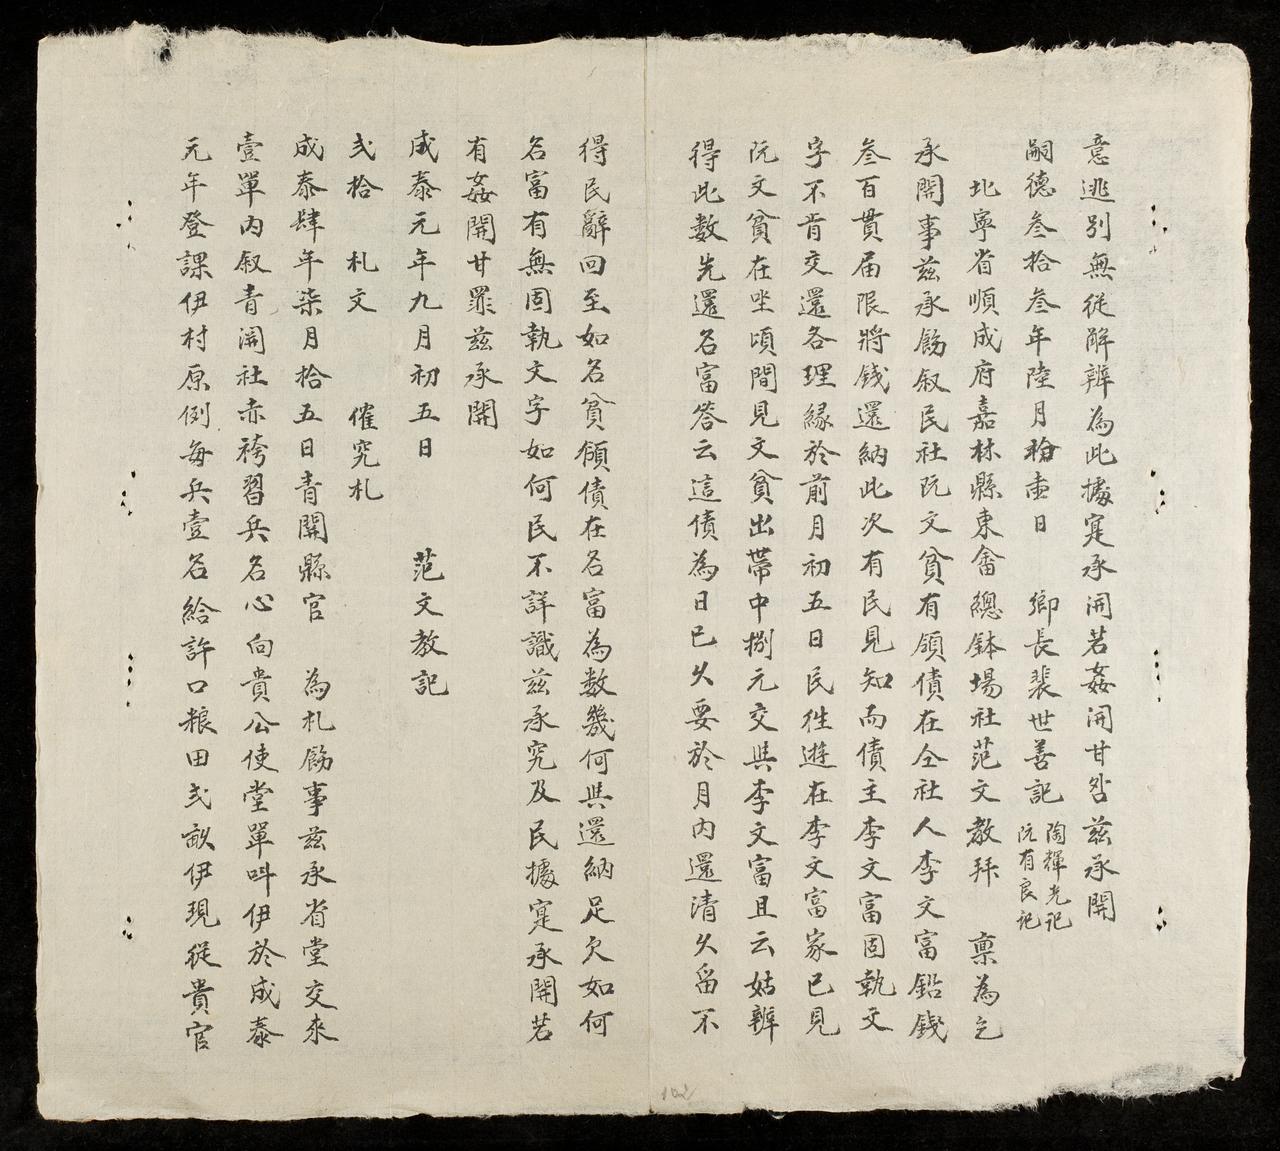 意逃別無從解辨為此據寔承開若姦開甘咎茲承開
嗣德叁拾叁年陸月拾壹日 鄉長裴世善記 陶輝光記 阮有良記
北寧省順成府嘉林縣東畬總鉢場社范文教拜 稟為乞
承開事茲承飭叙民社阮文貧有領債在仝社人李文富鉛錢
叁百貫届限將錢還納此次有民見知而債主李文富固執文
字不肯交還各理緣於前月初五日民徃遊在李文富家已見
阮文貧在坐頃間見文貧出帶中捌元交與李文富且云姑辨
得此数先還名富答云這債為日已久要於月內還清久留不
得民辭回至如名貧領債在名富為数幾何與還納足欠如何
名富有無固執文字如何民不詳識茲承究及民據寔承開若
有姦開甘罪茲承開
成泰元年九月初五日 范文教記
弍拾 札文 催究札
成泰肆年柒月拾五日青關縣官 為札飭事茲承省堂交來
壹單內叙青關社赤袴習兵名心向貴公使堂單叫伊於成泰
元年登課伊村原例每兵壹名給許口粮田弍畝伊現從貴官